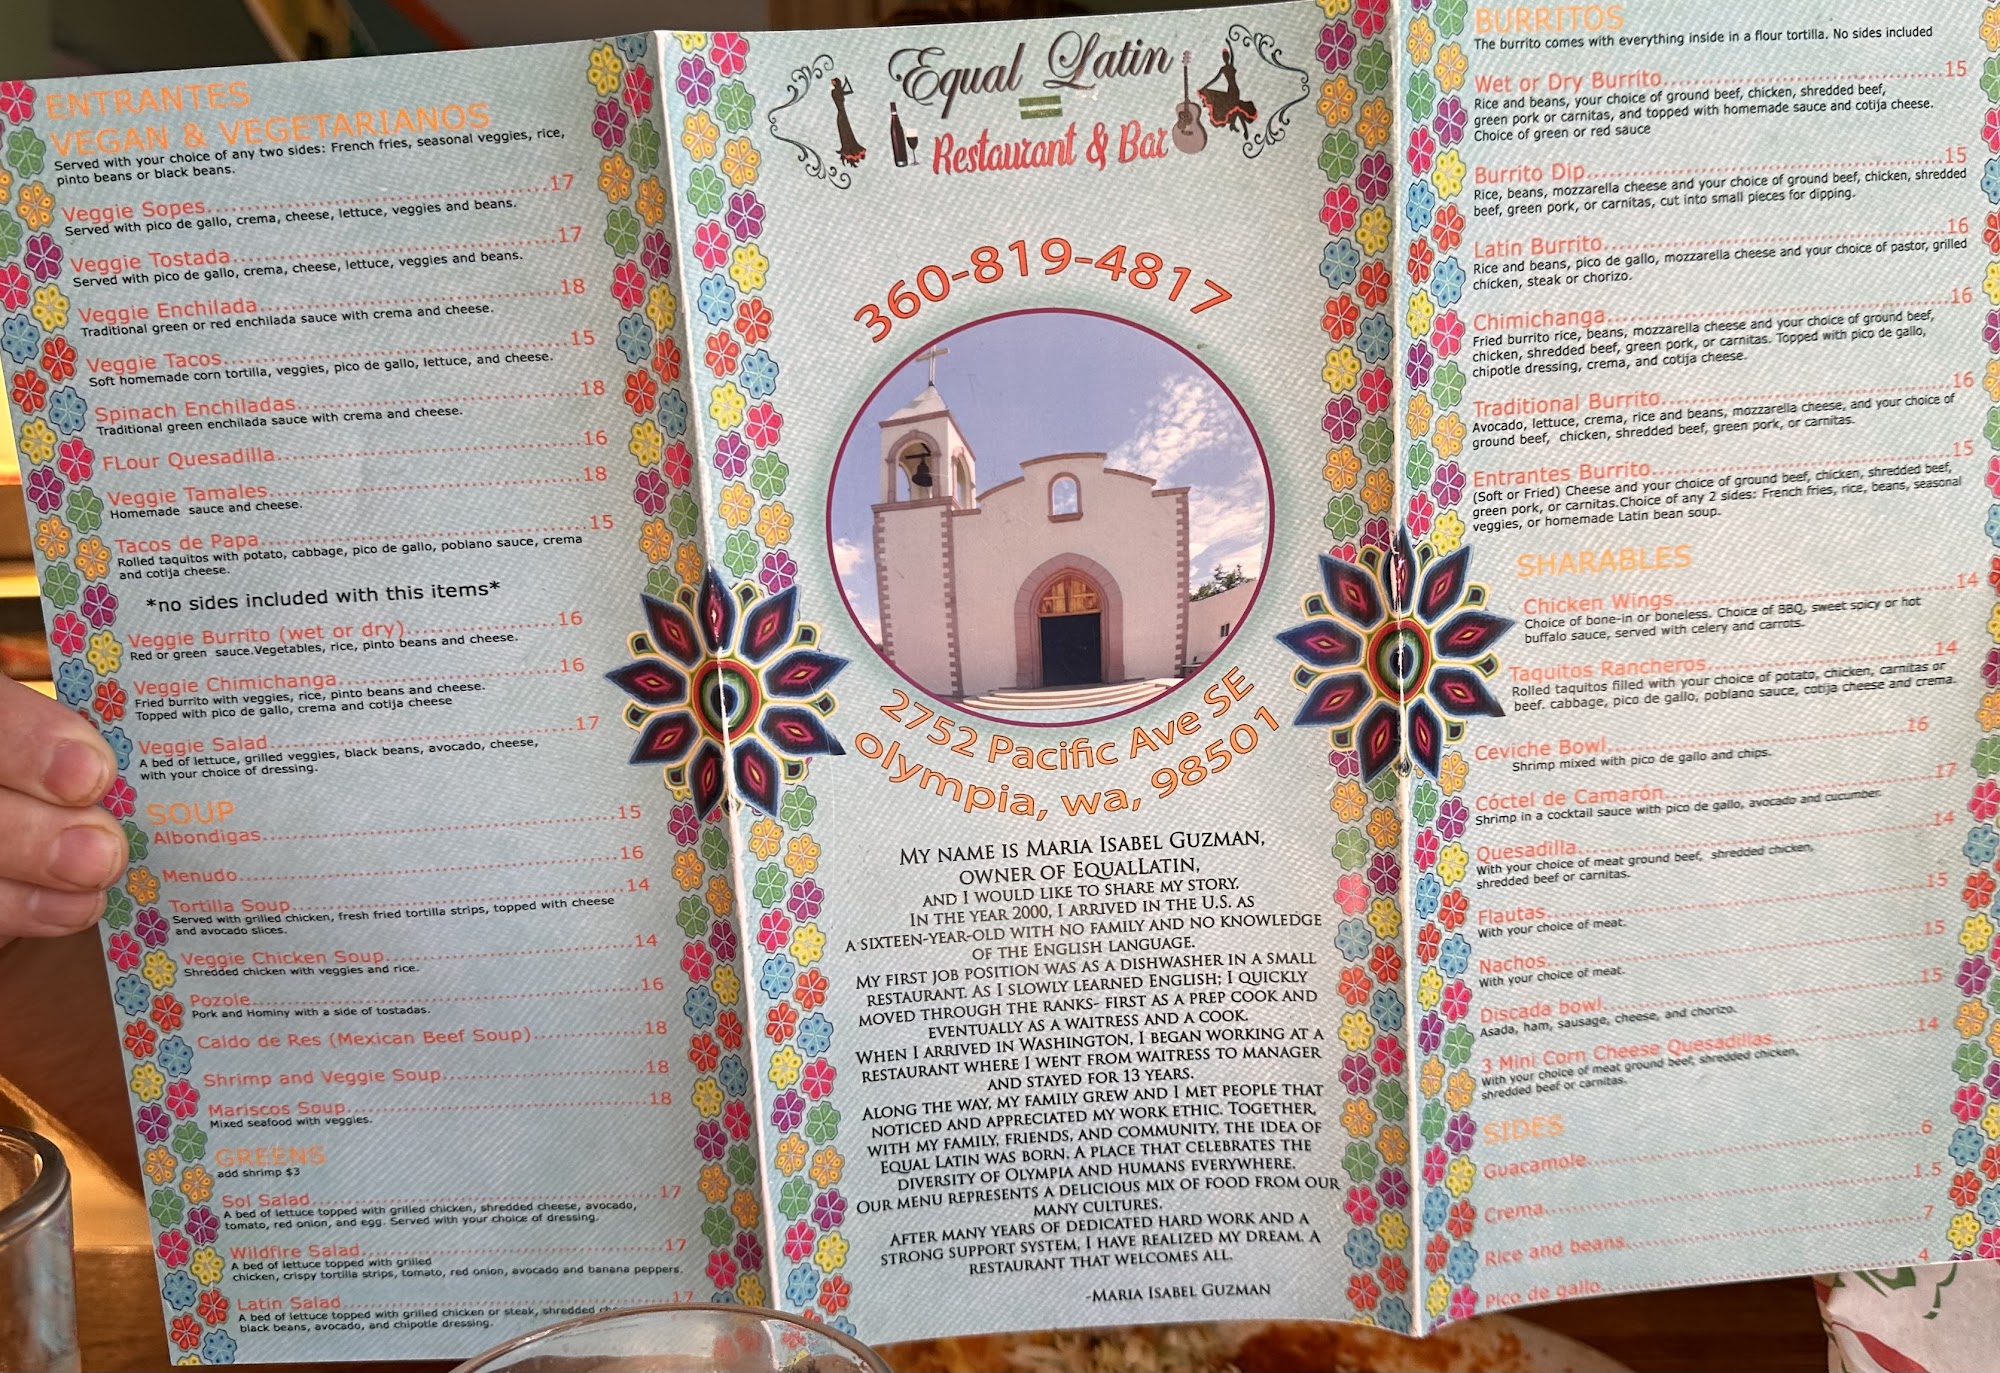 ENTRANTES
VEGAN & VEGETARIANOS
Served with your choice of any two sides: French fries, seasonal veggies, rice,
pinto beans or black beans.
Veggie Sopes 17
Served with pico de gallo, crema, cheese, lettuce, veggies and beans.
Veggie Tostada 17
Served with pico de gallo, crema, cheese, lettuce, veggies and beans.
Veggie Enchilada 18
Traditional green or red enchilada sauce with crema and cheese.
Veggie Tacos 15
Soft homemade corn tortilla, veggies, pico de gallo, lettuce, and cheese.
Spinach Enchiladas 18
Traditional green enchilada sauce with crema and cheese.
FLour Quesadilla 16
Veggie Tamales 18
Homemade sauce and cheese.
Tacos de Papa 15
Rolled taquitos with potato, cabbage, pico de gallo, poblano sauce, crema
and cotija cheese.
*no sides included with this items*
Veggie Burrito (wet or dry) 16
Red or green sauce.Vegetables, rice, pinto beans and cheese.
Veggie Chimichanga 16
Fried burrito with veggies, rice, pinto beans and cheese.
Topped with pico de gallo, crema and cotija cheese
Veggie Salad 17
A bed of lettuce, grilled veggies, black beans, avocado, cheese,
with your choice of dressing.
SOUP
Albondigas 15
Menudo 16
Tortilla Soup 14
Served with grilled chicken, fresh fried tortilla strips, topped with cheese
and avocado slices.
Veggie Chicken Soup 14
Shredded chicken with veggies and rice.
Pozole 16
Pork and Hominy with a side of tostadas.
Caldo de Res (Mexican Beef Soup) 18
Shrimp and Veggie Soup 18
Mariscos Soup 18
Mixed seafood with veggies.
GREENS
add shrimp $3
Sol Salad 17
A bed of lettuce topped with grilled chicken, shredded cheese, avocado,
tomato, red onion, and egg. Served with your choice of dressing.
Wildfire Salad 17
A bed of lettuce topped with grilled
chicken, crispy tortilla strips, tomato, red onion, avocado and banana peppers.
Latin Salad 17
A bed of lettuce topped with grilled chicken or steak, shredded
black beans, avocado, and chipotle dressing.
Equal Latin
Restaurant & Bar
360-819-4817
2752 Pacific Ave SE
olympia, wa, 98501
MY NAME IS MARIA ISABEL GUZMAN,
OWNER OF EQUALLATIN,
AND I WOULD LIKE TO SHARE MY STORY.
IN THE YEAR 2000, I ARRIVED IN THE U.S. AS
A SIXTEEN-YEAR-OLD WITH NO FAMILY AND NO KNOWLEDGE
OF THE ENGLISH LANGUAGE.
MY FIRST JOB POSITION WAS AS A DISHWASHER IN A SMALL
RESTAURANT. AS I SLOWLY LEARNED ENGLISH; I QUICKLY
MOVED THROUGH THE RANKS- FIRST AS A PREP COOK AND
EVENTUALLY AS A WAITRESS AND A COOK.
WHEN I ARRIVED IN WASHINGTON, I BEGAN WORKING AT A
RESTAURANT WHERE I WENT FROM WAITRESS TO MANAGER
AND STAYED FOR 13 YEARS.
ALONG THE WAY, MY FAMILY GREW AND I MET PEOPLE THAT
NOTICED AND APPRECIATED MY WORK ETHIC. TOGETHER,
WITH MY FAMILY, FRIENDS, AND COMMUNITY, THE IDEA OF
EQUAL LATIN WAS BORN. A PLACE THAT CELEBRATES THE
DIVERSITY OF OLYMPIA AND HUMANS EVERYWHERE.
OUR MENU REPRESENTS A DELICIOUS MIX OF FOOD FROM OUR
MANY CULTURES.
AFTER MANY YEARS OF DEDICATED HARD WORK AND A
STRONG SUPPORT SYSTEM, I HAVE REALIZED MY DREAM. A
RESTAURANT THAT WELCOMES ALL.
-MARIA ISABEL GUZMAN
BURRITOS
The burrito comes with everything inside in a flour tortilla. No sides included
Wet or Dry Burrito 15
Rice and beans, your choice of ground beef, chicken, shredded beef,
green pork or carnitas, and topped with homemade sauce and cotija cheese.
Choice of green or red sauce
Burrito Dip 15
Rice, beans, mozzarella cheese and your choice of ground beef, chicken, shredded
beef, green pork, or carnitas, cut into small pieces for dipping.
Latin Burrito 16
Rice and beans, pico de gallo, mozzarella cheese and your choice of pastor, grilled
chicken, steak or chorizo.
Chimichanga 16
Fried burrito rice, beans, mozzarella cheese and your choice of ground beef,
chicken, shredded beef, green pork, or carnitas. Topped with pico de gallo,
chipotle dressing, crema, and cotija cheese.
Traditional Burrito 16
Avocado, lettuce, crema, rice and beans, mozzarella cheese, and your choice of
ground beef, chicken, shredded beef, green pork, or carnitas.
Entrantes Burrito 15
(Soft or Fried) Cheese and your choice of ground beef, chicken, shredded beef,
green pork, or carnitas.Choice of any 2 sides: French fries, rice, beans, seasonal
veggies, or homemade Latin bean soup.
SHARABLES
Chicken Wings 14
Choice of bone-in or boneless. Choice of BBQ, sweet spicy or hot
buffalo sauce, served with celery and carrots.
Taquitos Rancheros 14
Rolled taquitos filled with your choice of potato, chicken, carnitas or
beef. cabbage, pico de gallo, poblano sauce, cotija cheese and crema.
Ceviche Bowl 16
Shrimp mixed with pico de gallo and chips.
Cóctel de Camarón 17
Shrimp in a cocktail sauce with pico de gallo, avocado and cucumber.
Quesadilla 14
With your choice of meat ground beef, shredded chicken,
shredded beef or carnitas.
Flautas 15
With your choice of meat.
Nachos 15
With your choice of meat.
Discada bowl 15
Asada, ham, sausage, cheese, and chorizo.
3 Mini Corn Cheese Quesadillas 14
With your choice of meat ground beef, shredded chicken,
shredded beef or carnitas.
SIDES
Guacamole 6
Crema 1.5
Rice and beans 7
Pico de gallo 4